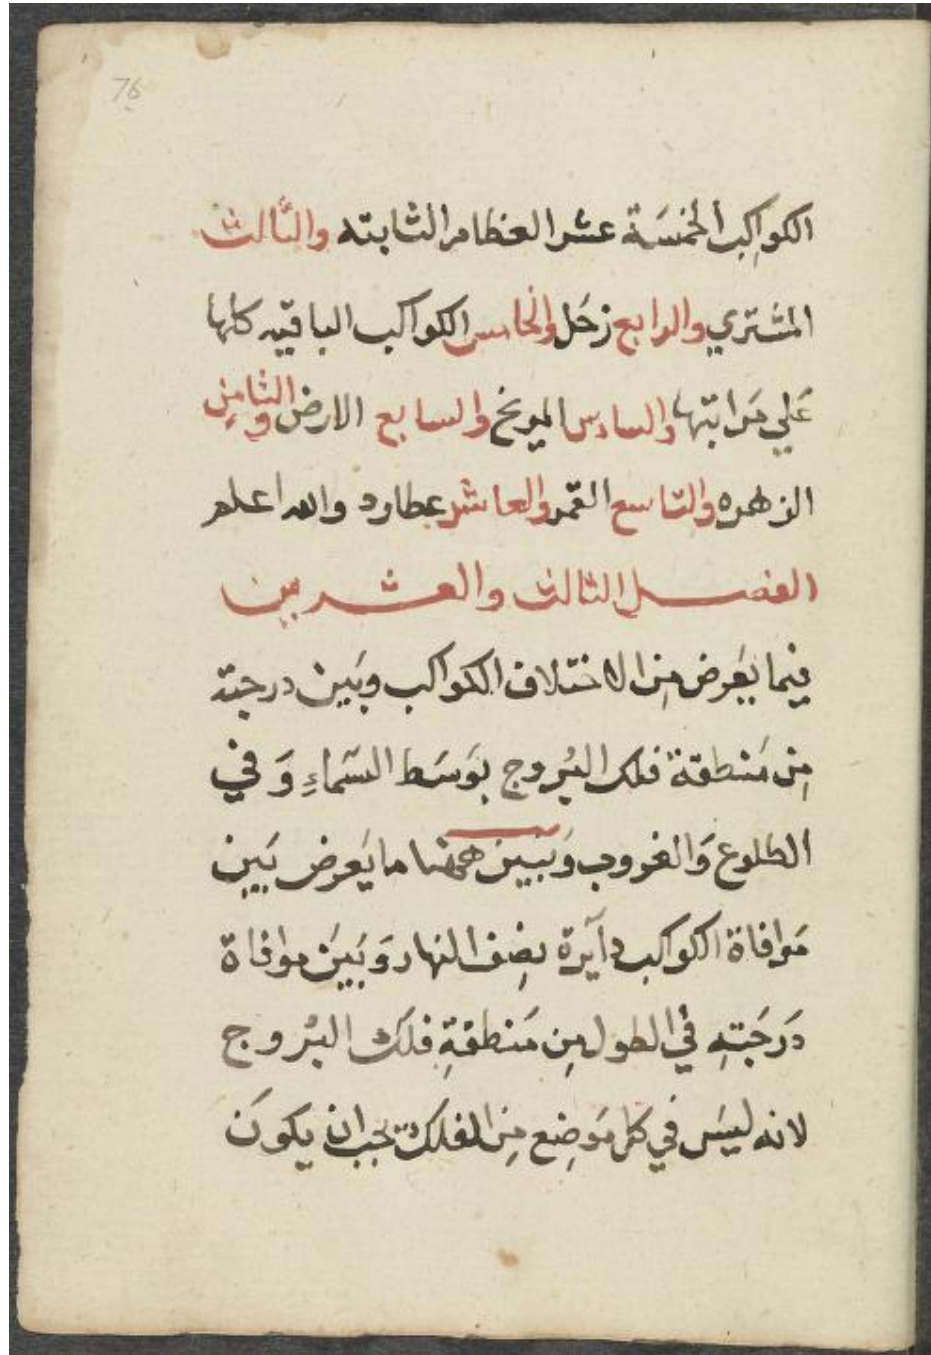 76
الكواكِب الخمسَة عشر العظام الثابته والثَّالث
المشتري والرابع زحَل والخامس الكواكب الباقيه كلها
عَلي مَراتبَها والسادس المريخ والسابع الارض والثامِن
الزهره والتاسع القمر والعاشر عطارد والله اعلم
الفصل الثالث والعشرين
فيما يَعرض مِن الاختلاف الكواكب وبَين درجته
مِن مَنطقة فلك البُروج بوَسَط السَماءِ وَفي
الطلوع وَالغروب وَنبَين ههنا ما يَعرض بَين
مَوافاة الكواكب دآيرة نِصف النهار وَبَينَ موافاة
دَرجَتهِ في الطول مِن مَنطقةِ فلَك البُروج
لانه ليسَ في كل مَوضِع مِن الفلك يجب ان يكونَ